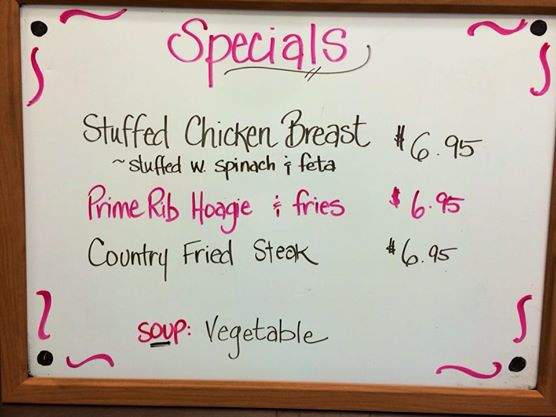 Specials
Stuffed Chicken Breast $6.95
~stuffed w. spinach & feta
Prime Rib Hoagie & fries $6.95
Country Fried Steak $6.95
soup: Vegetable